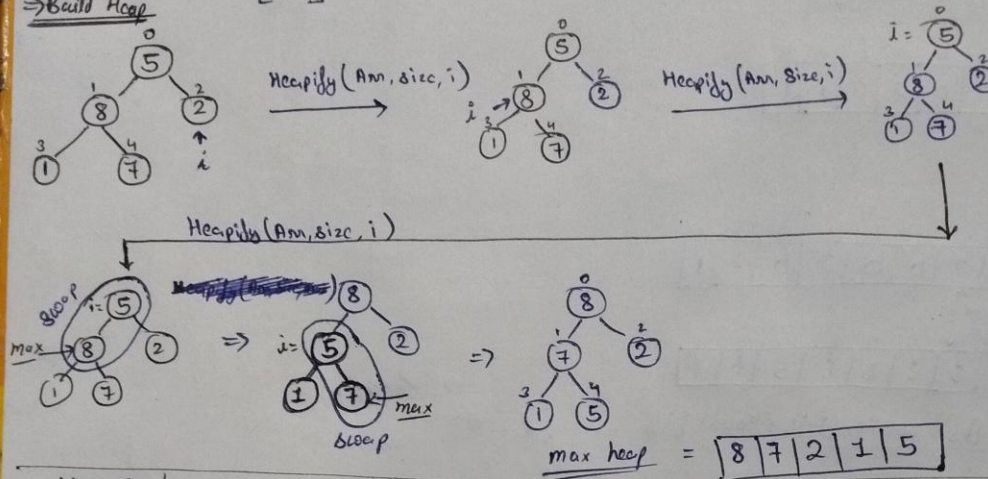 ⇒ Build Heap
0
5
1
8
2
2
3
1
4
7
↑
i
Heapify(Arr, size, i)
0
5
i → 1
8
2
2
3
1
4
7
Heapify(Arr, size, i)
0
i = 5
1
8
2
2
3
1
4
7
Heapify(Arr, size, i)
swap
i = 5
max → 8
2
1
7
⇒
8
i = 5
2
1
7 ← max
swap
⇒
0
8
1
7
2
2
3
1
4
5
max heap = 8 7 2 1 5